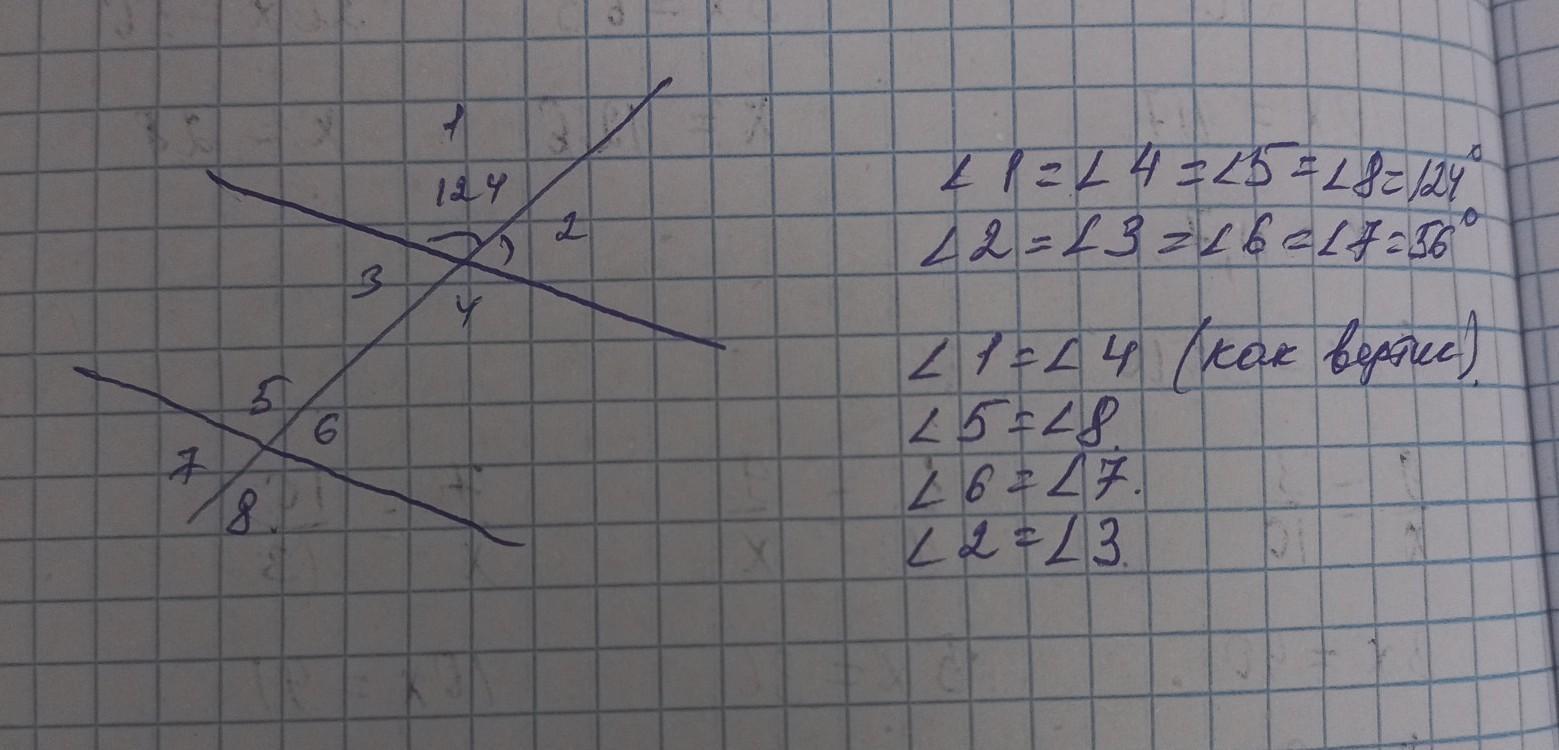 1
124
2
3
4
5
6
7
8.
∠1=∠4=∠5=∠8=124°
∠2=∠3=∠6=∠7=56°
∠1=∠4 (как вертик).
∠5=∠8.
∠6=∠7.
∠2=∠3.